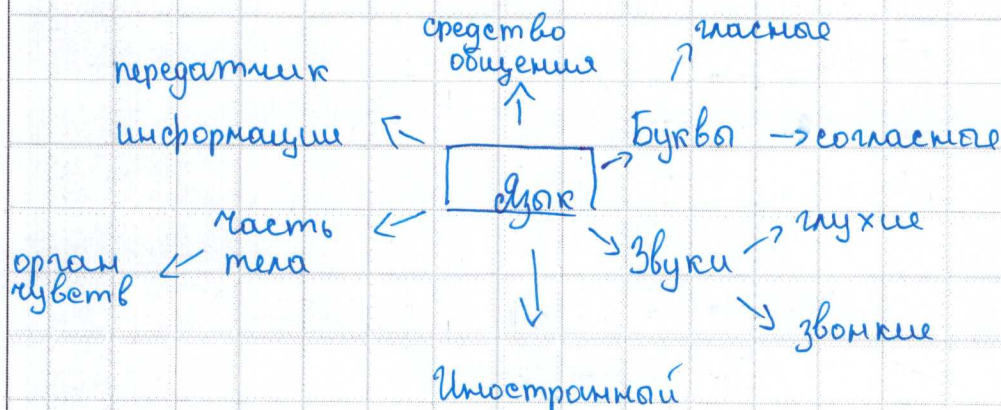 средство
общения
гласные
передатчик
информации
Буквы → согласные
Язык
часть
тела
глухие
Звуки
орган
чувств
звонкие
Иностранный